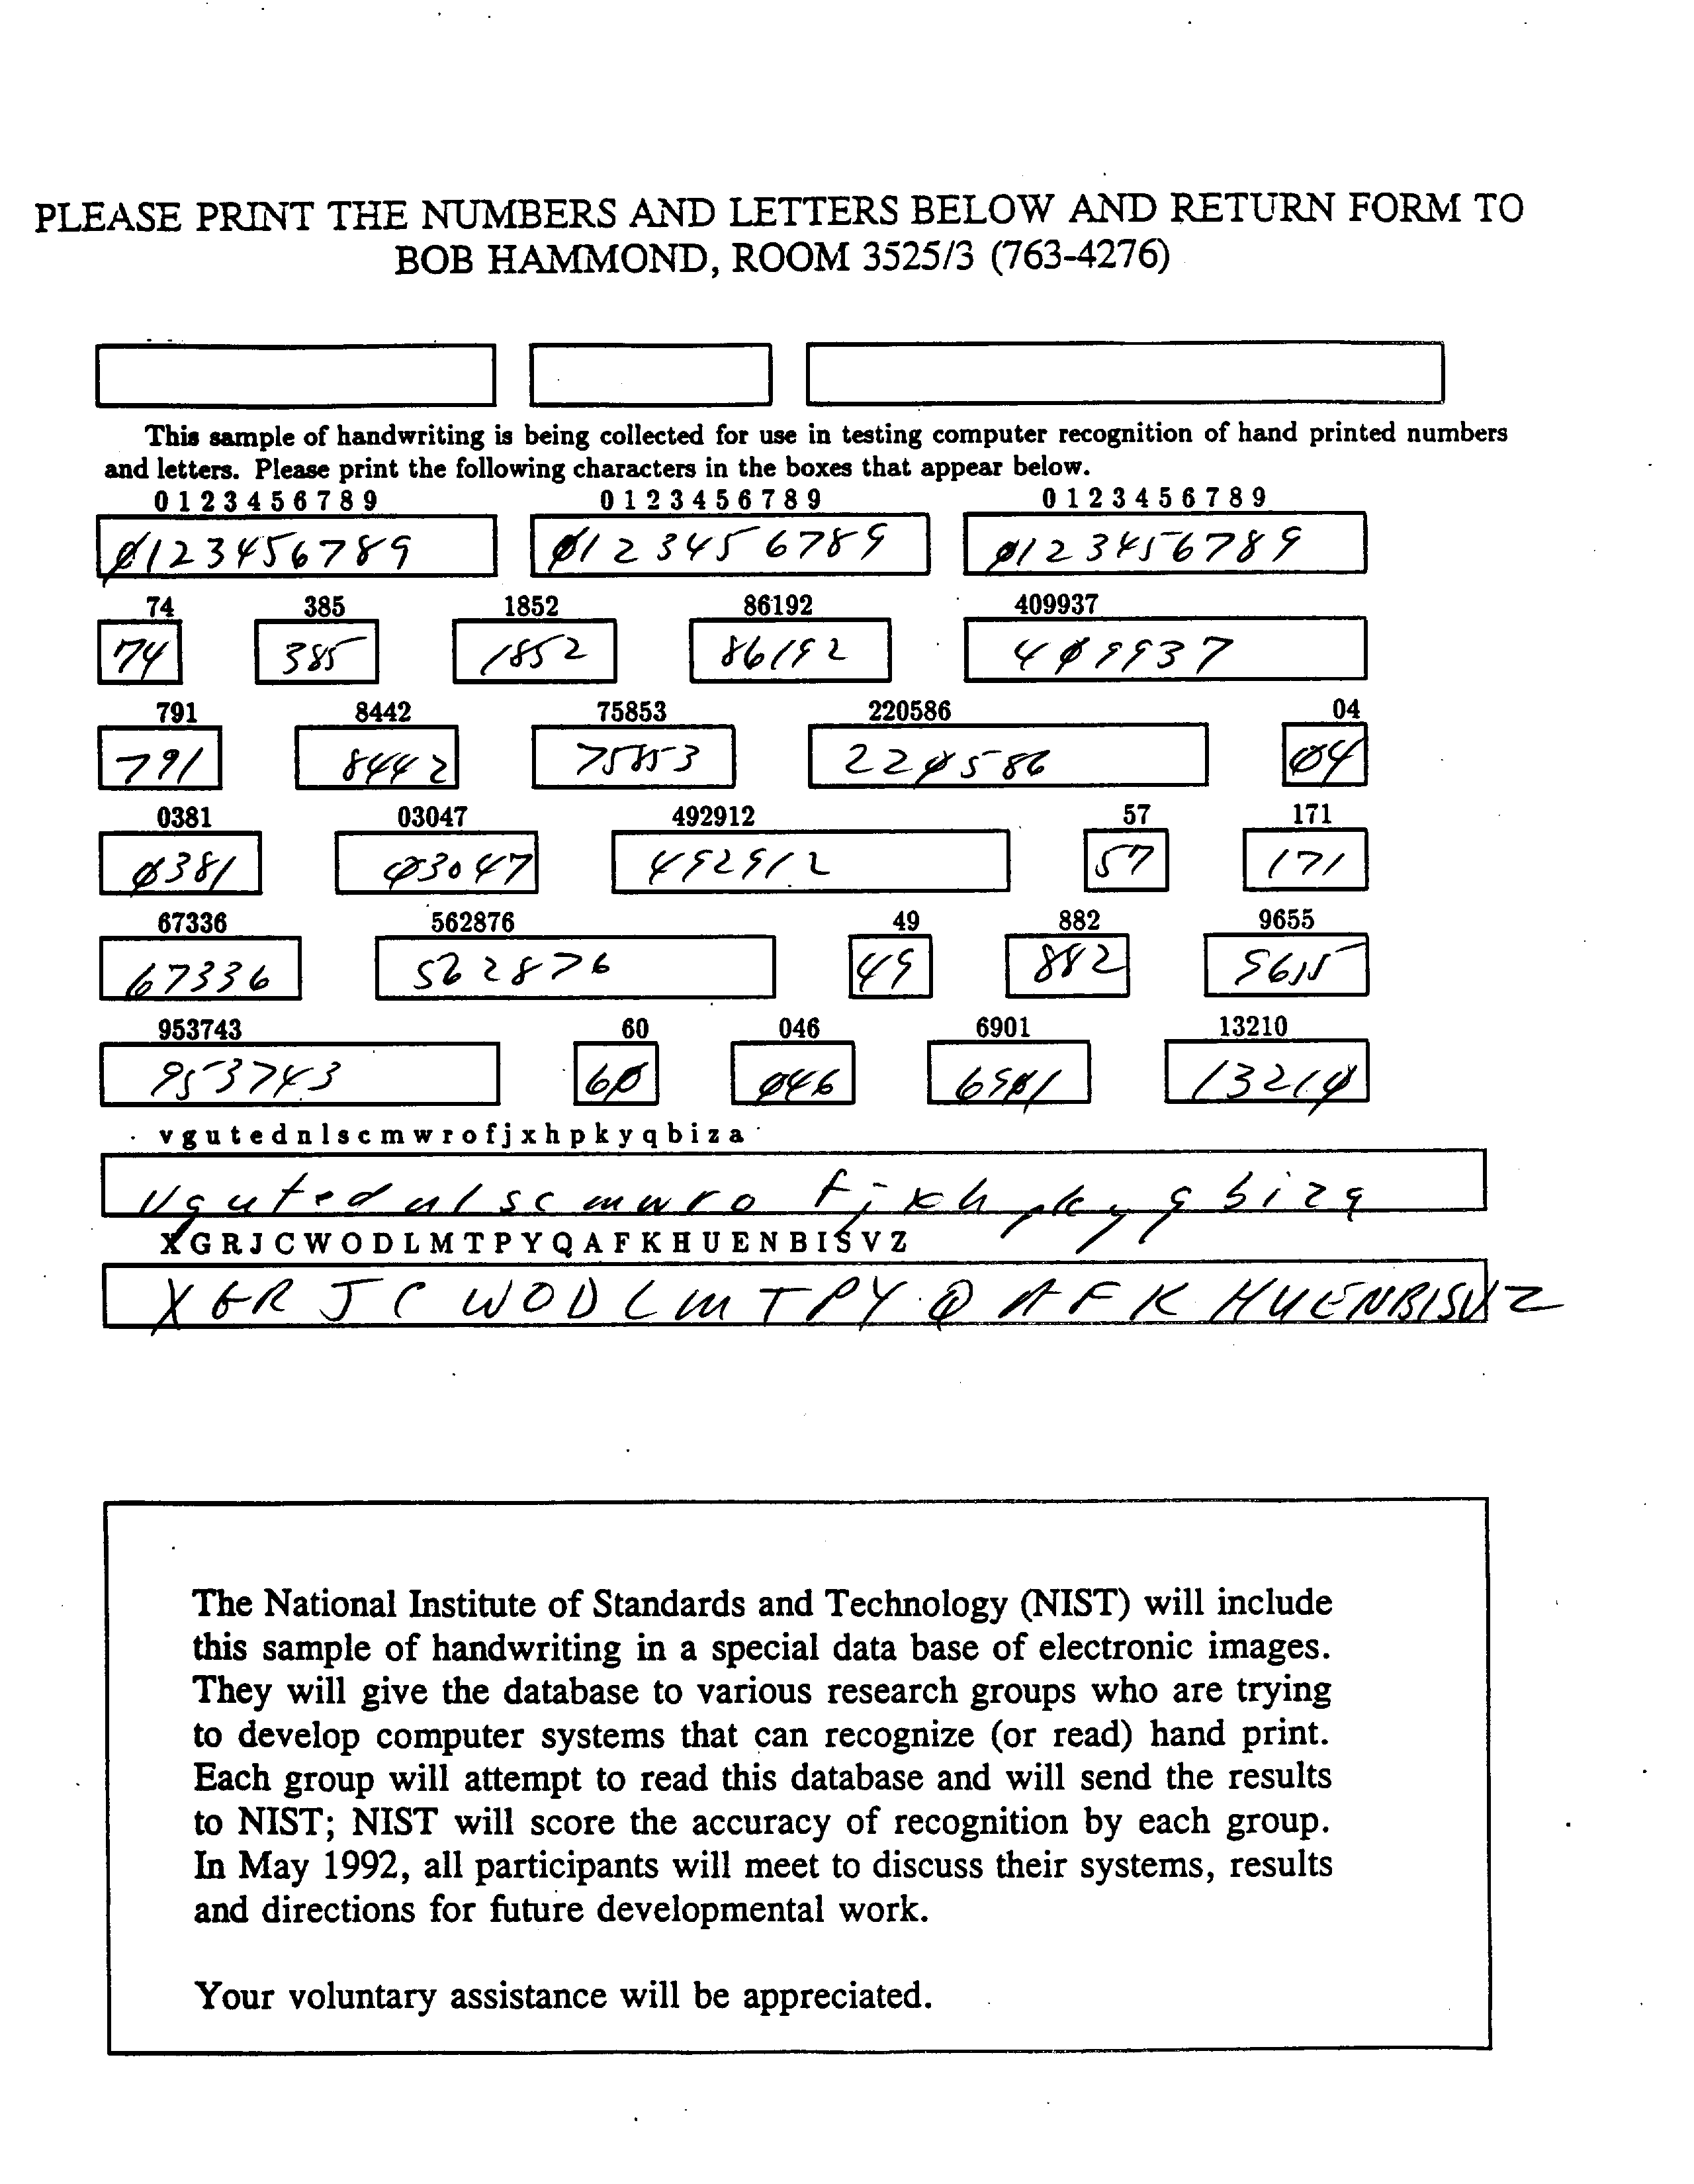 PLEASE PRINT THE NUMBERS AND LETTERS BELOW AND RETURN FORM TO
BOB HAMMOND, ROOM 3525/3 (763-4276)
This sample of handwriting is being collected for use in testing computer recognition of hand printed numbers
and letters. Please print the following characters in the boxes that appear below.
0 1 2 3 4 5 6 7 8 9 0 1 2 3 4 5 6 7 8 9 0 1 2 3 4 5 6 7 8 9
0123456789 0123456789 0123456789
74 385 1852 86192 409937
74 385 1852 86192 409937
791 8442 75853 220586 04
791 8442 75853 220586 04
0381 03047 492912 57 171
0381 03047 492912 57 171
67336 562876 49 882 9655
67336 562876 49 882 9655
953743 60 046 6901 13210
953743 60 046 6901 13210
v g u t e d n l s c m w r o f j x h p k y q b i z a
v g u t e d n l s c m w r o f j x h p k y q b i z a
X G R J C W O D L M T P Y Q A F K H U E N B I S V Z
X G R J C W O D L M T P Y Q A F K H U E N B I S V Z
The National Institute of Standards and Technology (NIST) will include
this sample of handwriting in a special data base of electronic images.
They will give the database to various research groups who are trying
to develop computer systems that can recognize (or read) hand print.
Each group will attempt to read this database and will send the results
to NIST; NIST will score the accuracy of recognition by each group.
In May 1992, all participants will meet to discuss their systems, results
and directions for future developmental work.
Your voluntary assistance will be appreciated.